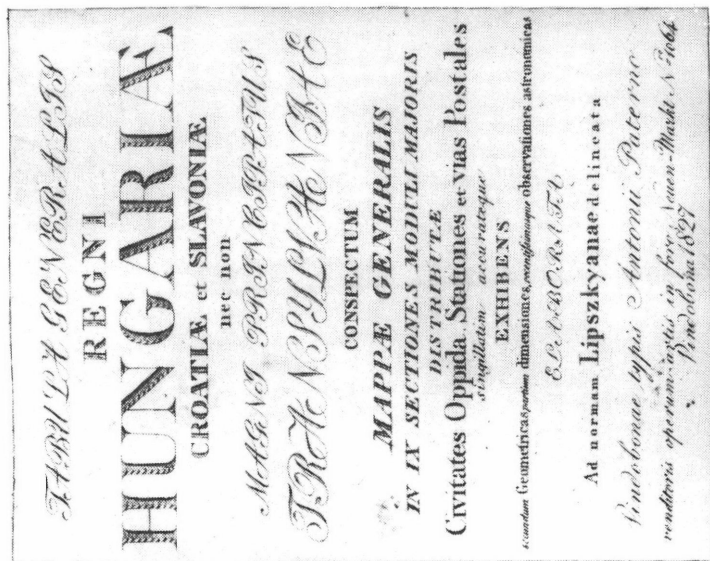 TABULA GENERALIS
REGNI
HUNGARIÆ
CROATIÆ et SLAVONIÆ
nec non
MAGNI PRINCIPATUS
TRANSYLVANIAE
CONSPECTUM
MAPPÆ GENERALIS
IN IX SECTIONES MODULI MAJORIS
DISTRIBUTÆ
Civitates Oppida Stationes et vias Postales
singillatim accurateque
EXHIBENS
secundum Geometricas partim dimensiones, recentissimasque observationes astronomicas
ELABORATA
Ad normam Lipszkyanae delineata
Vindobonae typis Antonii Paterno
venditoris operum artis in foro Neuen-Markt N° 1064
Vindobona 1827